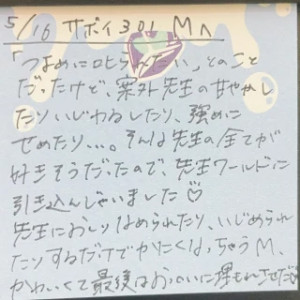 5/16 サボイ301 Mへ
「つよめに叱られたい」とのこと
だったけど、案外先生の甘やかし
たりいじわるしたり、強めに
せめたり...。そんな先生の全てが
好きそうだったので、先生ワールドに
引き込んじゃいました♡
先生におしりなめられたり、いじめられ
たりするだけでかたくなっちゃうM、
かわいくて最後はおっぱいに埋もれさせた